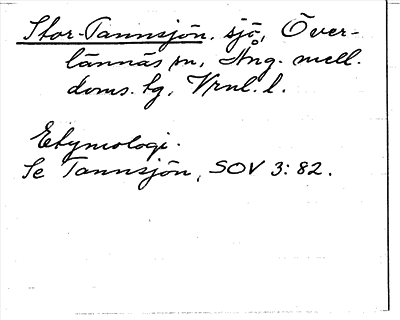 Stor-Tannsjön, sjö, Över-
lännäs sn, Ång. mell.
doms. tg, Vrnl. l.
Etymologi.
Se Tannsjön, SOV 3:82.